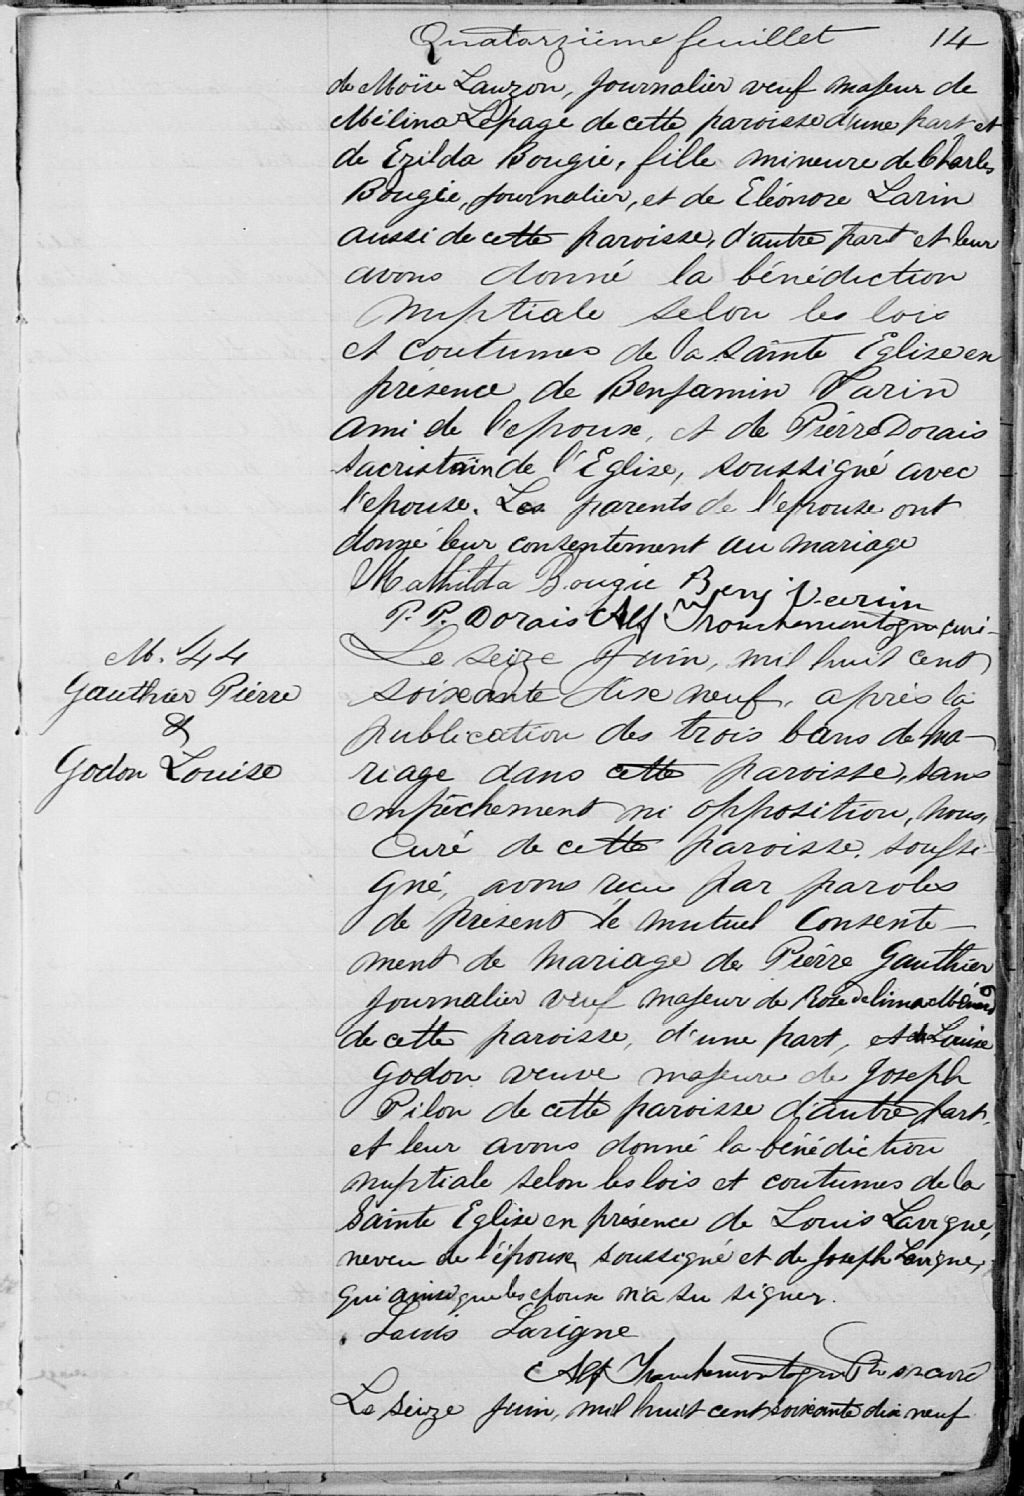 Quatorzième feuillet 14
de Moïse Lauzon, journalier veuf majeur de
Mélina Lepage de cette paroisse d'une part et
de Ezilda Bougie, fille mineure de Charles
Bougie, journalier, et de Eléonore Larin
aussi de cette paroisse, d'autre part et leur
avons donné la bénédiction
nuptiale selon les lois
et coutumes de la Sainte Eglise en
présence de Benjamin Varin
ami de l'epoux, et de Pierre Dorais
sacristain de l'Eglise, soussigné avec
l'epouse. Les parents de l'epouse ont
donné leur consentement au mariage
Mathilda Bougie Benj Verrin
P. P. Dorais Alf Tranchemontagne curé
M. 44
Gauthier Pierre
&
Godon Louise
Le seize Juin, mil huit cent
soixante dixe neuf, après la
publication des trois bans de ma-
riage dans cette paroisse, sans
empêchement ni opposition, nous,
Curé de cette paroisse, soussi-
gné, avons reçu par paroles
de présent le mutuel Consente-
ment de mariage de Pierre Gauthier
journalier veuf majeur de Rose de lima
de cette paroisse, d'une part, et de Louise
Godon veuve majeure de Joseph
Pilon de cette paroisse d'autre part,
et leur avons donné la bénédiction
nuptiale selon les lois et coutumes de la
Sainte Eglise en présence de Louis Lavigne,
neveu de l'époux, soussigné et de Joseph Lavigne,
qui ainsi que les epoux n'a su signer.
Louis Lavigne
Alf Tranchemontagne Ptre curé
Le seize Juin, mil huit cent soixante dix neuf